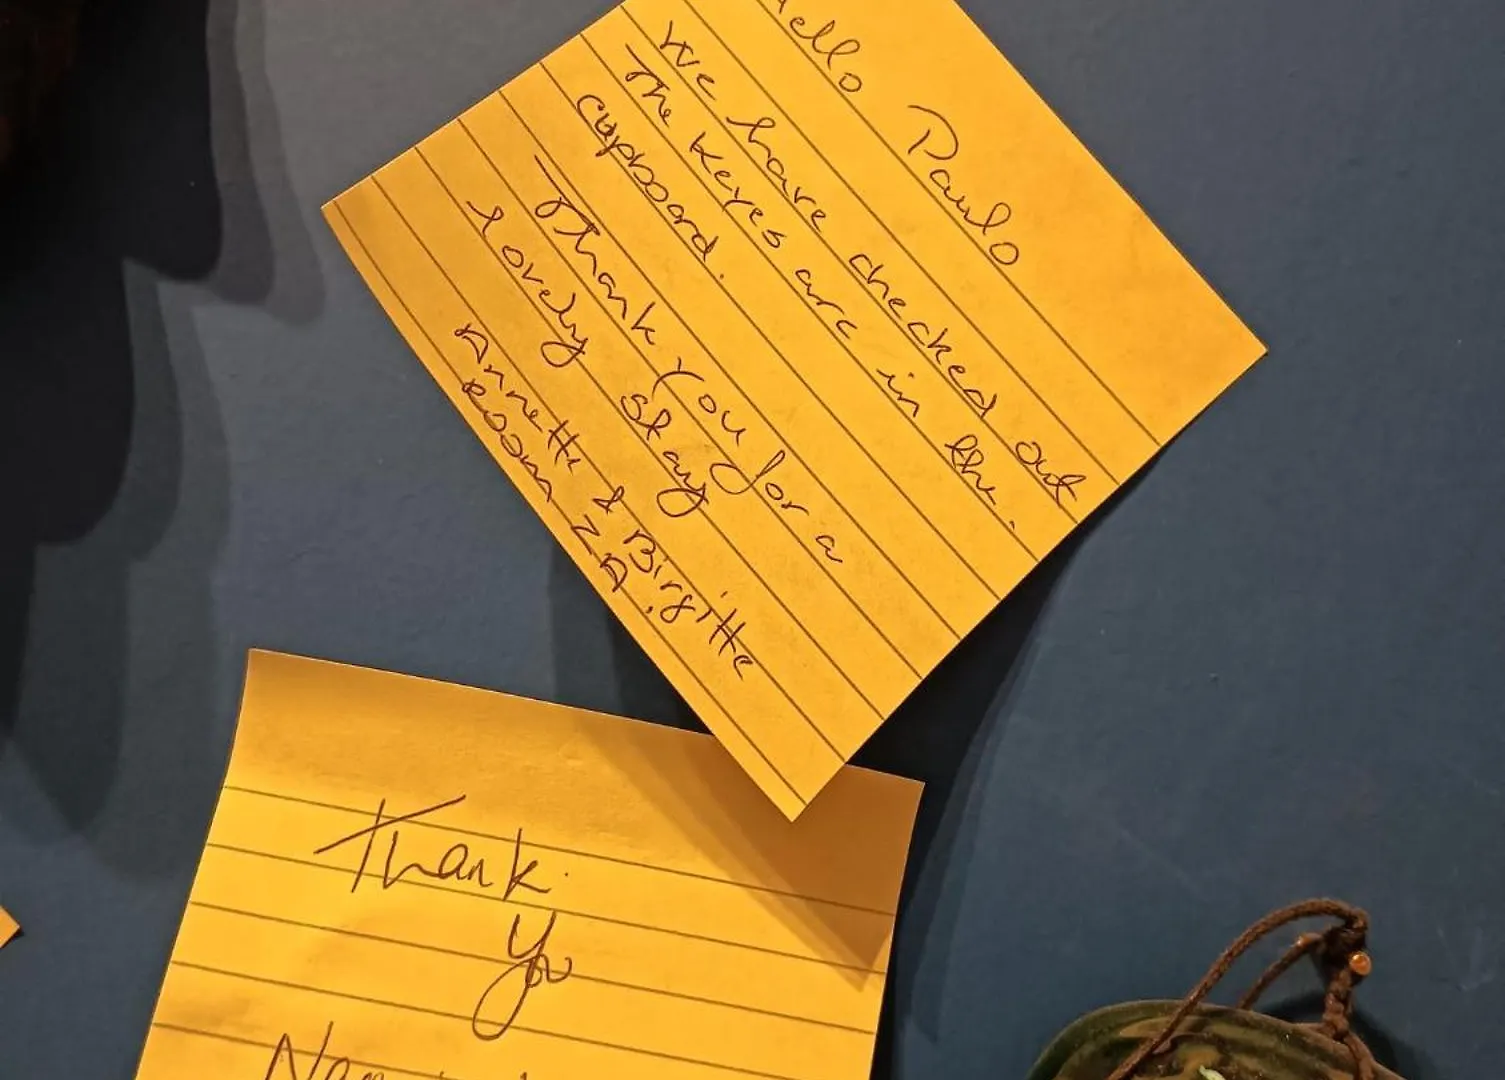 Hello Paulo
We have checked out
The Keyes are in the.
cupboard.
Thank you for a
lovely stay
Annette & Birgitte
Room 2A.
Thank
You